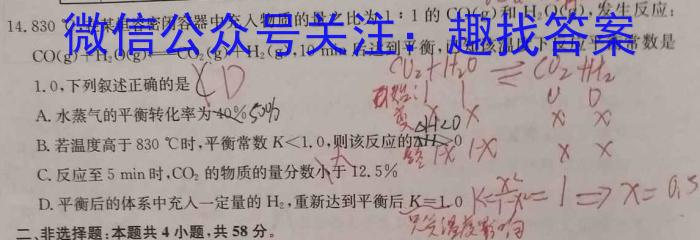 14.830 ℃ 某恒容密闭容器中充入物质的量之比为 1∶1 的 CO(g) 和 H₂O(g),发生反应:
微信公众号关注:趣找答案
CO(g)+H₂O(g) CO₂(g)+H₂(g),10 min 后达到平衡, 该温度下 反应平衡常数是
1.0,下列叙述正确的是 CD
CO₂+H₂O ⇌ CO₂+H₂
1 1 0 0
A. 水蒸气的平衡转化率为 40% 50%
变 x x x x
ΔH<0
B. 若温度高于 830 ℃时,平衡常数 K<1.0,则该反应的ΔH>0
1-x 1-x x x
C. 反应至 5 min 时,CO₂ 的物质的量分数小于 12.5%
D. 平衡后的体系中充入一定量的 H₂,重新达到平衡后 K=1.0
K= =1 ⇒ x=0.5
只受温度影响
二、非选择题:本题共 4 小题,共 58 分。